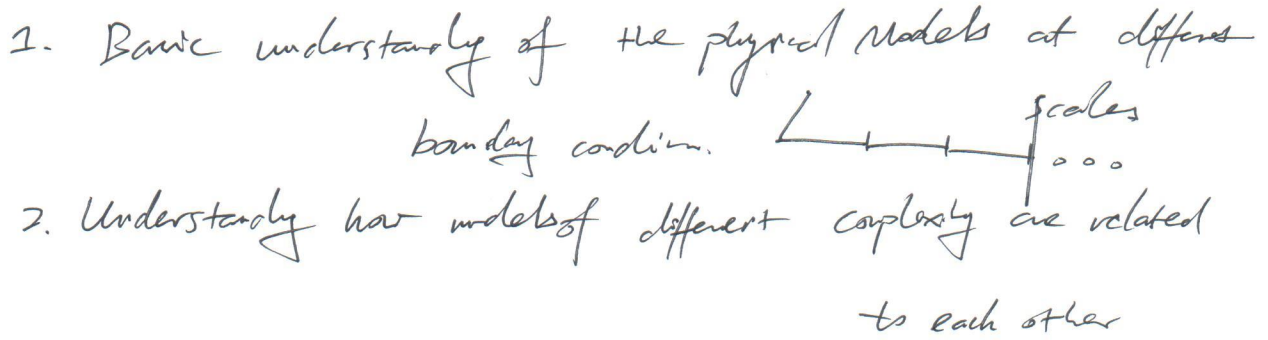 1. Basic understanding of the physical models at different
scales
boundary condition.
2. Understanding how models of different complexity are related
to each other